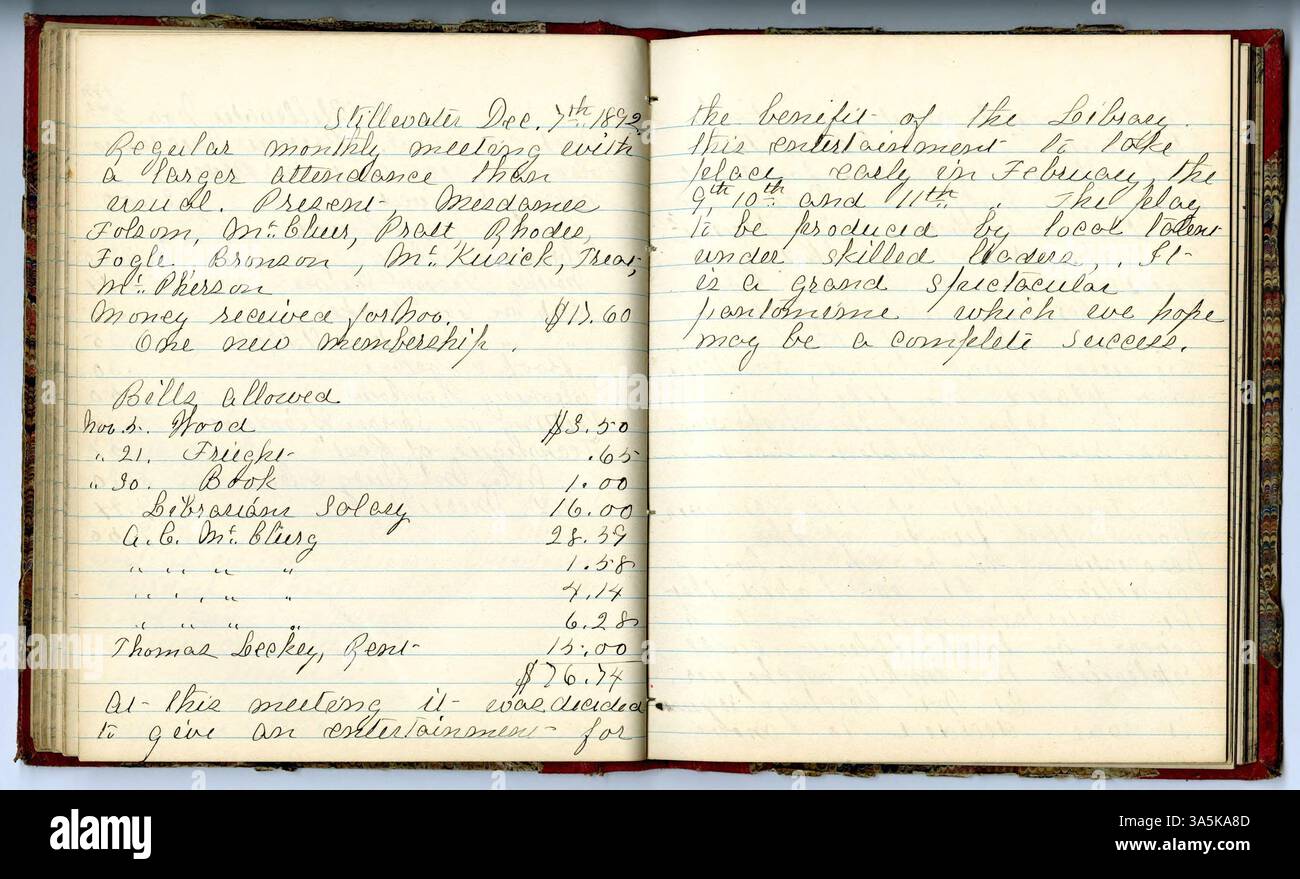 Stillwater Dec. 7th 1892.
Regular monthly meeting with
a larger attendance than
usual. Present Mesdames
Folsom, Mc. Cluer, Pratt, Rhodes,
Fogle Bronson, Mc. Kusick, Treat,
Mc. Pherson
Money received for Nov. $17.60
One new membership.
Bills allowed
Nov. 5. Wood $3.50
" 21. Frieght .65
" 30. Book 1.00
Librarians Salary 16.00
A. C. Mc. Clurg 28.59
" " " " 1.58
" " " " 4.14
" " " " 6.28
Thomas Leckey, Rent 15.00
$76.74
At this meeting it was decided
to give an entertainment for
the benefit of the Library.
this entertainment to take
place early in February, the
9th 10th and 11th. The play
to be produced by local talent
under skilled leaders. It
is a grand spectacular
pantomime which we hope
may be a complete success.
alamy
www.alamy.com
Image ID: 3A5KA8D